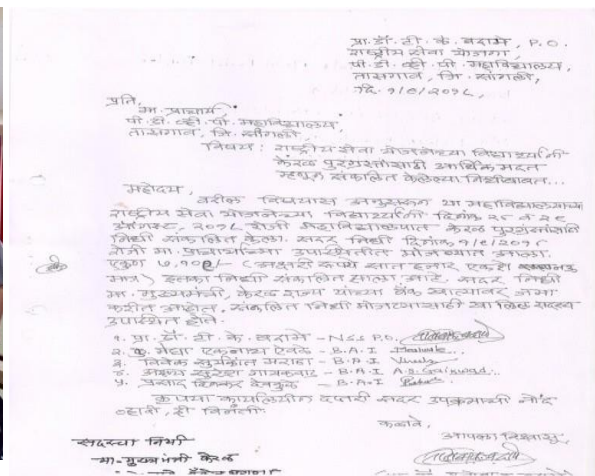 प्रा. डॉ. टी. के. बदामे, P.O.
राष्ट्रीय सेवा योजना,
पी. डी. व्ही. पी. महाविद्यालय,
तासगाव, जि. सांगली,
दि. १/९/२०१८,
प्रति,
मा. प्राचार्य,
पी. डी. व्ही. पी. महाविद्यालय,
तासगाव, जि. सांगली.
विषय : राष्ट्रीय सेवा योजनेच्या विद्यार्थ्यांनी
केरळ पुरग्रस्तांसाठी आर्थिक मदत
म्हणून संकलित केलेल्या निधीबाबत...
महोदय,
वरील विषयास अनुसरून या महाविद्यालयाच्या
राष्ट्रीय सेवा योजनेच्या विद्यार्थ्यांनी दिनांक २८ व २९
ऑगस्ट, २०१८ रोजी महाविद्यालयात केरळ पुरग्रस्तांसाठी
निधी संकलित केला. सदर निधी दिनांक १/९/२०१८
रोजी मा. प्राचार्यांच्या उपस्थितीत मोजण्यात आला.
एकूण (अक्षरी रुपये सात हजार एकशे
मात्र) इतका निधी संकलित झाला आहे. सदर निधी
मा. मुख्यमंत्री, केरळ राज्य यांच्या बँक खात्यावर जमा
करीत आहोत. संकलित निधी मोजण्यासाठी खालील सदस्य
उपस्थित होते.
१. प्रा. डॉ. टी. के. बदामे - N.S.S P.O.
२. कु. मेघा एकनाथ - B.A.I
३. विवेक सुर्यकांत - B.A.I
४. अक्षय सुरेश गायकवाड - B.A.I A.S. Gaikwad
५. प्रसाद दिनकर देवकुळे - B.A.I
कृपया कार्यालयीन दप्तरी सदर उपक्रमाची नोंद
व्हावी, ही विनंती.
कळावे,
आपला विश्वासू,
सदरचा निधी
मा. मुख्यमंत्री केरळ